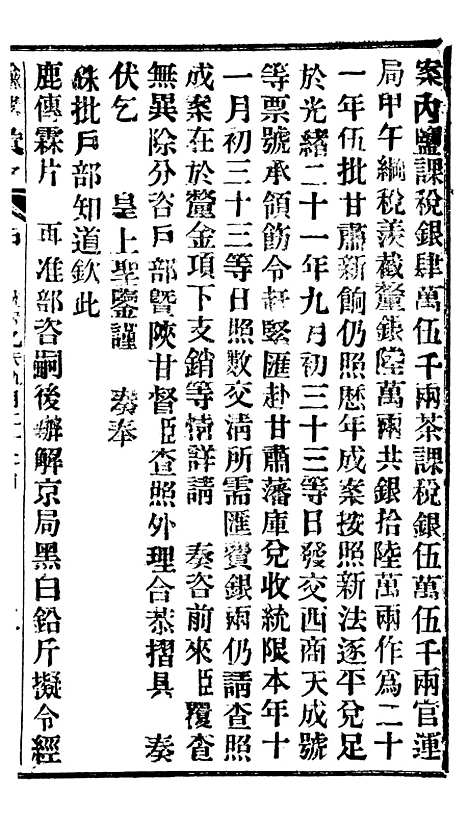 案內鹽課稅銀肆萬伍千兩茶課稅銀伍萬伍千兩官運
局甲午綱稅羨截釐銀陸萬兩共銀拾陸萬兩作爲二十
一年伍批甘肅新餉仍照歷年成案按照新法逐平兌足
於光緒二十一年九月初三十三等日發交西商天成號
等票號承領飭令赶緊匯赴甘肅藩庫兌收統限本年十
一月初三十三等日照數交淸所需匯費銀兩仍請查照
成案在於釐金項下支銷等情詳請 奏咨前來臣覆查
無異除分咨戶部暨陝甘督臣查照外理合恭摺具 奏
伏乞 皇上聖鑒謹 奏奉
硃批戶部知道欽此
鹿傳霖片 再准部咨嗣後辦解京局黑白鉛斤擬令經